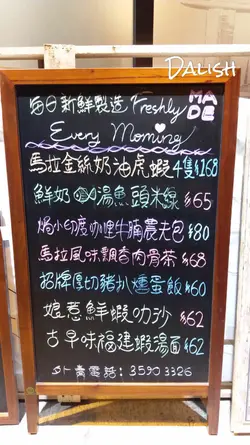 DALISH
每日新鮮製造 Freshly MADE
Every Morning
馬拉金絲奶油虎蝦 4隻$168
鮮奶 湯魚頭米線 $65
焗小印度咖哩牛腩農夫包 $80
馬拉風味飄香肉骨茶 $68
招牌厚切豬扒燻蛋飯 $60
娘惹鮮蝦叻沙 $62
古早味福建蝦湯面 $62
外賣電話：35903326